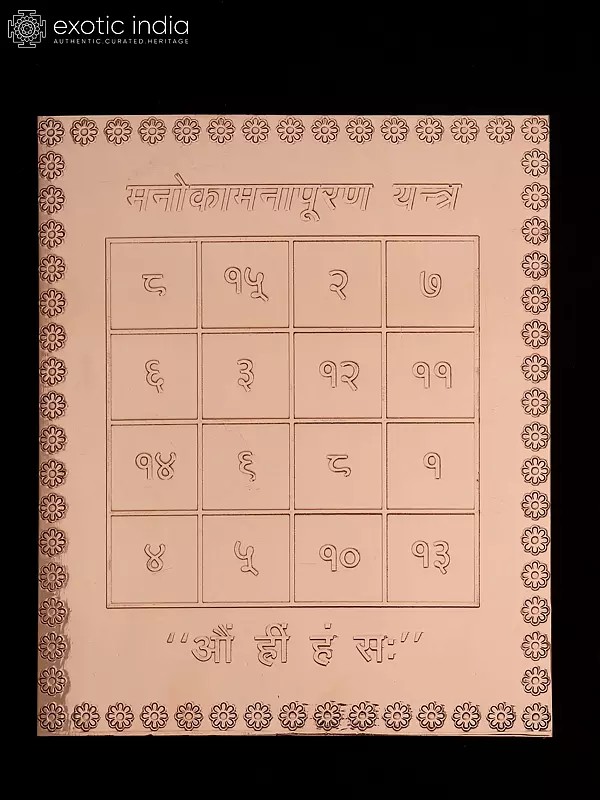 exotic india
AUTHENTIC.CURATED.HERITAGE
मनोकामनापूरण यन्त्र
८ १५ २ ७
६ ३ १२ ११
१४ ६ ८ १
४ ५ १० १३
“औं ह्रीं हं सः”